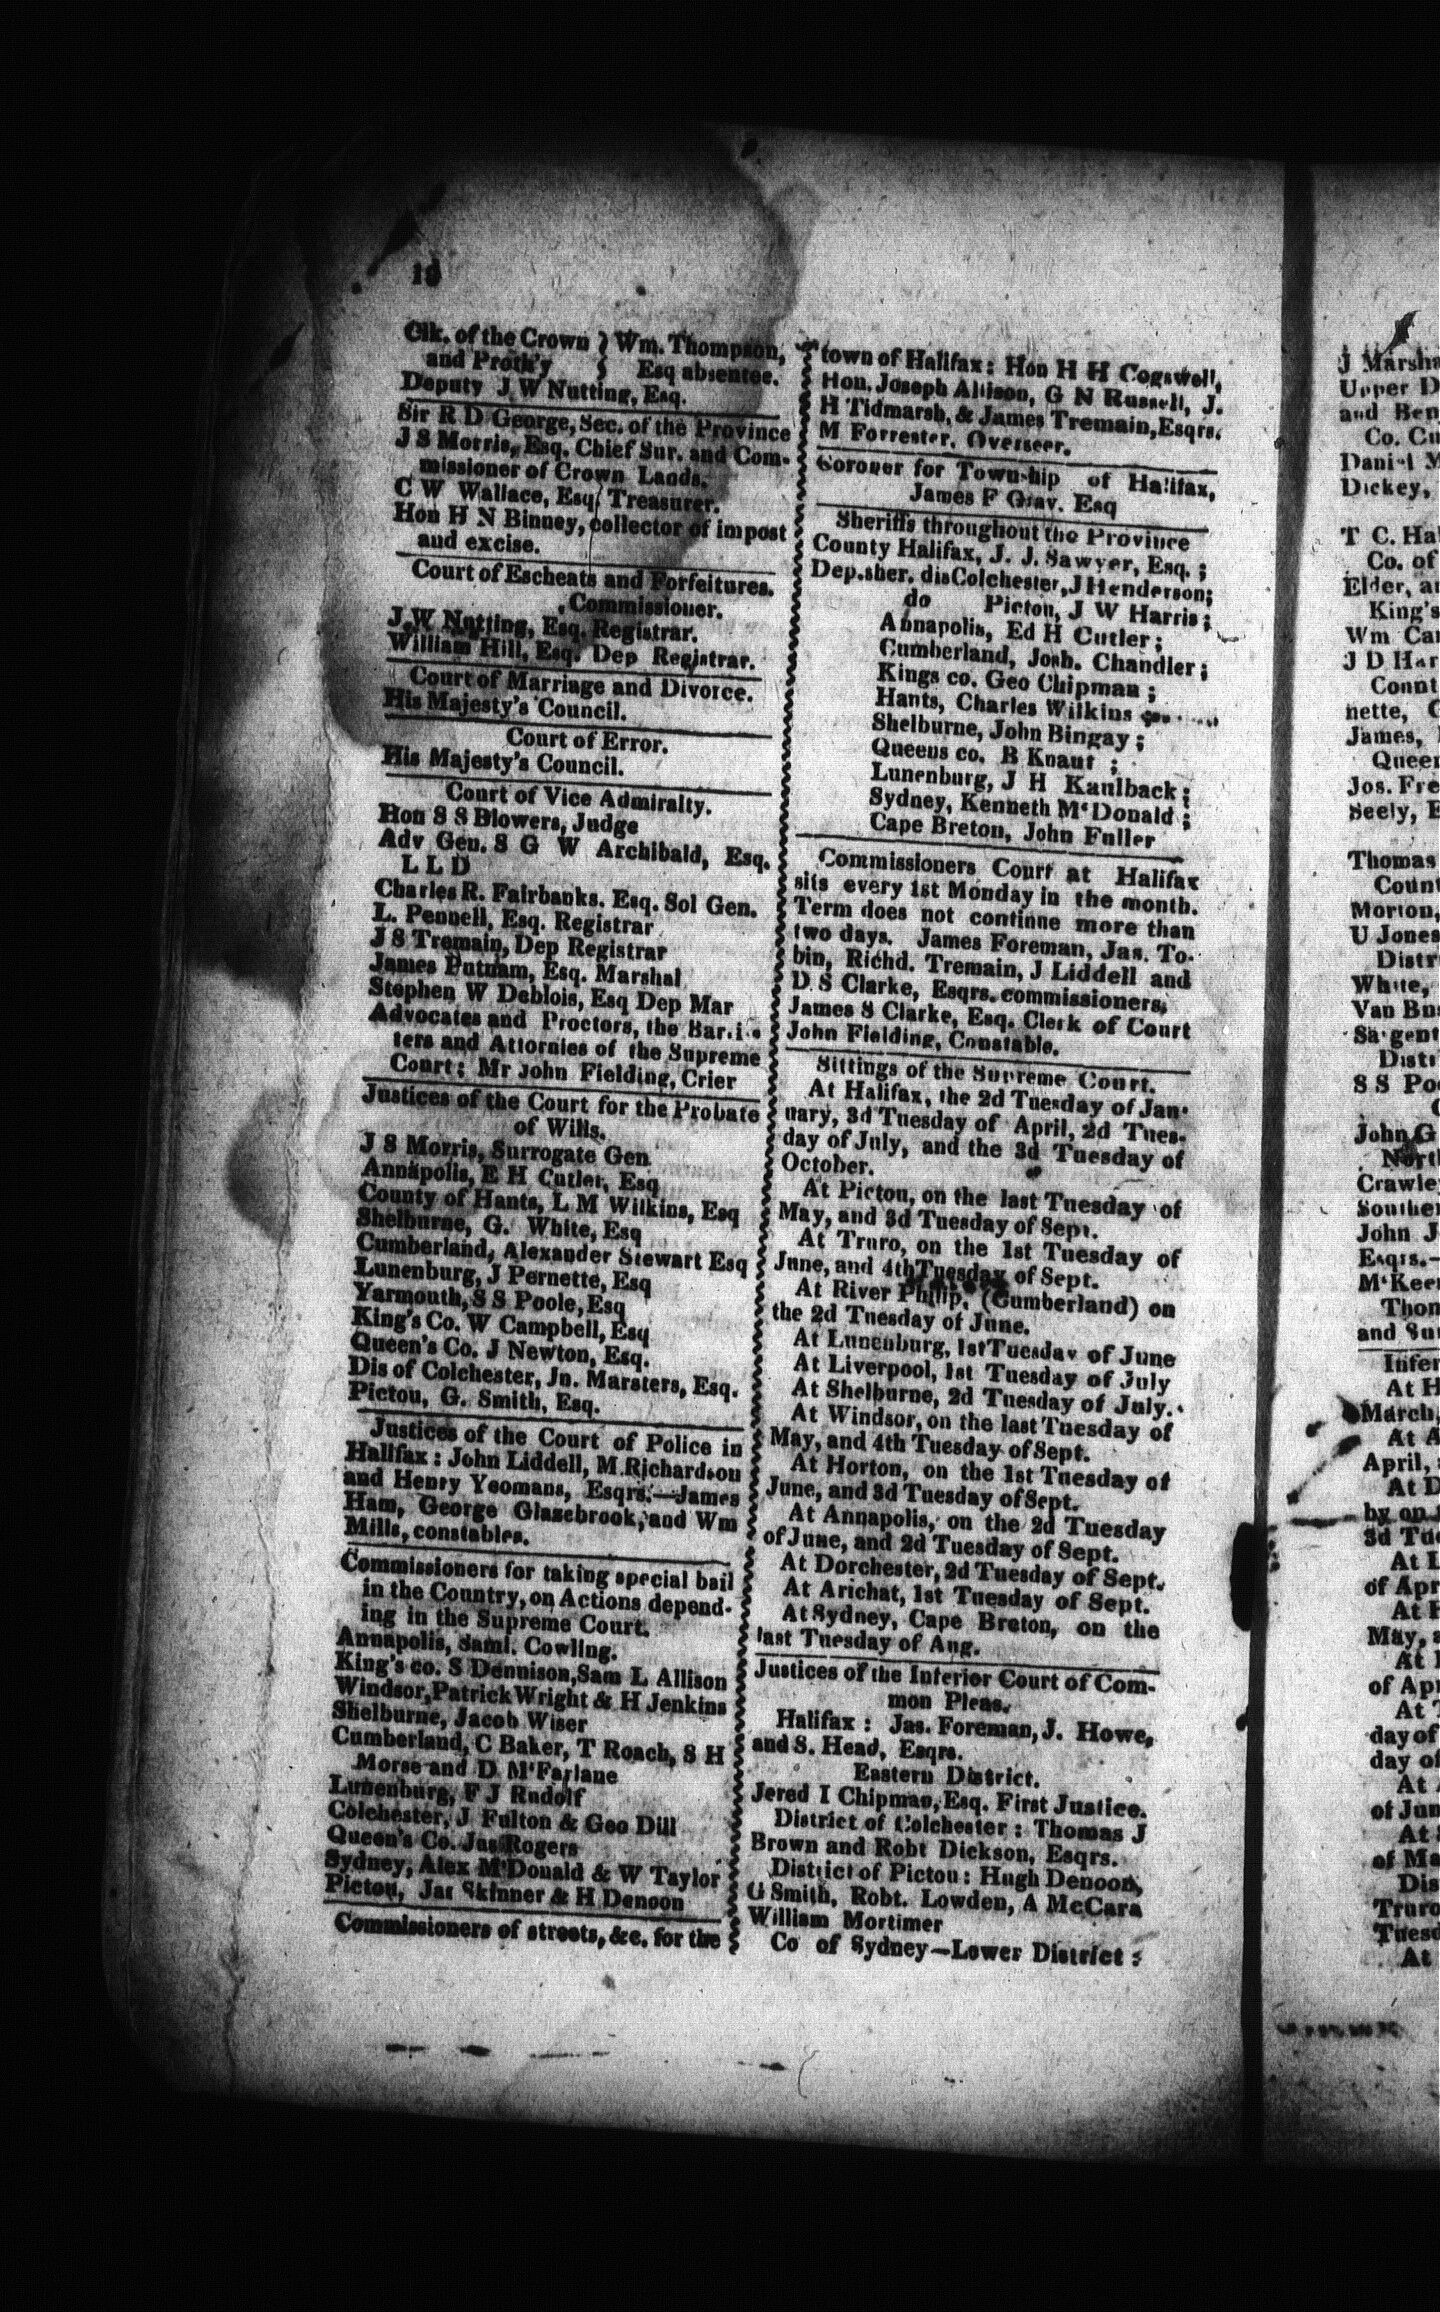 Clk. of the Crown } Wm. Thompson,
and Proth'y } Esq absentee.
Deputy J W Nutting, Esq.
Sir R D George, Sec. of the Province
J S Morris, Esq. Chief Sur. and Com-
missioner of Crown Lands.
C W Wallace, Esq. Treasurer.
Hon H N Binney, collector of impost
and excise.
Court of Escheats and Forfeitures.
Commissioner.
J. W Nutting, Esq. Registrar.
William Hill, Esq. Dep Registrar.
Court of Marriage and Divorce.
His Majesty's Council.
Court of Error.
His Majesty's Council.
Court of Vice Admiralty.
Hon S S Blowers, Judge
Adv Gen. S G W Archibald, Esq.
L L D
Charles R. Fairbanks. Esq. Sol Gen.
L. Pennell, Esq. Registrar
J S Tremain, Dep Registrar
James Putnam, Esq. Marshal
Stephen W Deblois, Esq Dep Mar
Advocates and Proctors, the Barris-
ters and Attornies of the Supreme
Court; Mr John Fielding, Crier
Justices of the Court for the Probate
of Wills.
J S Morris, Surrogate Gen
Annapolis, E H Cutler, Esq
County of Hants, L M Wilkins, Esq
Shelburne, G. White, Esq
Cumberland, Alexander Stewart Esq
Lunenburg, J Pernette, Esq
Yarmouth, S S Poole, Esq
King's Co. W Campbell, Esq
Queen's Co. J Newton, Esq.
Dis of Colchester, Jn. Marsters, Esq.
Pictou, G. Smith, Esq.
Justices of the Court of Police in
Halifax: John Liddell, M Richardson
and Henry Yeomans, Esqrs.—James
Ham, George Glazebrook, and Wm
Mills, constables.
Commissioners for taking special bail
in the Country, on Actions depend-
ing in the Supreme Court.
Annapolis, Saml. Cowling.
King's co. S Dennison, Sam L Allison
Windsor, Patrick Wright & H Jenkins
Shelburne, Jacob Wiser
Cumberland, C Baker, T Roach, S H
Morse and D M'Farlane
Lunenburg, F J Rudolf
Colchester, J Fulton & Geo Dill
Queen's Co. Jas Rogers
Sydney, Alex M'Donald & W Taylor
Pictou, Jas Skinner & H Denoon
Commissioners of streets, &c. for the
town of Halifax: Hon H H Cogswell,
Hon. Joseph Allison, G N Russell, J.
H Tidmarsh, & James Tremain, Esqrs.
M Forrester. Overseer.
Coroner for Township of Halifax,
James F Gray. Esq
Sheriffs throughout the Province
County Halifax, J. J. Sawyer, Esq. ;
Dep. sher. dis Colchester, J Henderson;
do Pictou, J W Harris;
Annapolis, Ed H Cutler;
Cumberland, Josh. Chandler;
Kings co. Geo Chipman ;
Hants, Charles Wilkins
Shelburne, John Bingay ;
Queens co. B Knaut ;
Lunenburg, J H Kaulback;
Sydney, Kenneth M'Donald ;
Cape Breton, John Fuller
Commissioners Court at Halifax
sits every 1st Monday in the month.
Term does not continue more than
two days. James Foreman, Jas. To-
bin, Richd. Tremain, J Liddell and
D S Clarke, Esqrs. commissioners;
James S Clarke, Esq. Clerk of Court
John Fielding, Constable.
Sittings of the Supreme Court.
At Halifax, the 2d Tuesday of Jan-
uary, 3d Tuesday of April, 2d Tues-
day of July, and the 3d Tuesday of
October.
At Pictou, on the last Tuesday of
May, and 3d Tuesday of Sept.
At Truro, on the 1st Tuesday of
June, and 4th Tuesday of Sept.
At River Philip, (Cumberland) on
the 2d Tuesday of June.
At Lunenburg, 1st Tuesday of June
At Liverpool, 1st Tuesday of July
At Shelburne, 2d Tuesday of July.
At Windsor, on the last Tuesday of
May, and 4th Tuesday of Sept.
At Horton, on the 1st Tuesday of
June, and 3d Tuesday of Sept.
At Annapolis, on the 2d Tuesday
of June, and 2d Tuesday of Sept.
At Dorchester, 2d Tuesday of Sept.
At Arichat, 1st Tuesday of Sept.
At Sydney, Cape Breton, on the
last Tuesday of Aug.
Justices of the Inferior Court of Com-
mon Pleas.
Halifax: Jas. Foreman, J. Howe,
and S. Head, Esqrs.
Eastern District.
Jered I Chipman, Esq. First Justice.
District of Colchester: Thomas J
Brown and Robt Dickson, Esqrs.
District of Pictou: Hugh Denoon,
G Smith, Robt. Lowden, A McCara
William Mortimer
Co of Sydney—Lower District:
Upper
Co.
Dickey,
Co. of
Elder,
King's
Wm
nette,
James,
Seely,
Thomas
Morton,
U Jones
White,
S S
John G
Crawley
John
and
At
March,
At
April,
At
by on
At
of
At
May,
At
At
day of
day of
At
At
of
Truro
At